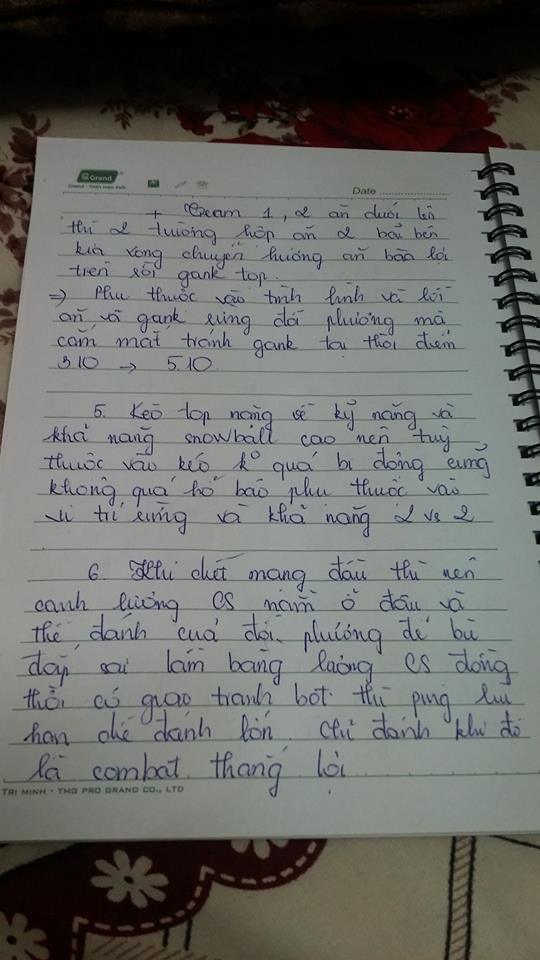 Grand
Date
+ Team 1, 2 ăn dưới lên
thì 2 trường hợp ăn 2 bãi bên
kia vòng chuyển hướng ăn bãi lợi
trên rồi gank top.
=> Phụ thuộc vào tình hình và lối
ăn và gank rừng đối phương mà
cắm mắt tránh gank tại thời điểm
3.10 → 5.10
5. Kèo top nặng về kỹ năng và
khả năng snowball cao nên tuỳ
thuộc vào kèo. k° quá bị động cũng
không quá hổ báo phụ thuộc vào
vị trí rừng và khả năng 2 vs 2
6. Khi chết mạng đầu thì nên
canh lượng CS nằm ở đâu và
thế đánh của đối phương để bù
đắp sai lầm bằng lượng CS đồng
thời có giao tranh bot thì ping lui
hạn chế đánh lớn. Chỉ đánh khi đó
là combat thắng lợi
TRI MINH - TMG PRO GRAND CO., LTD